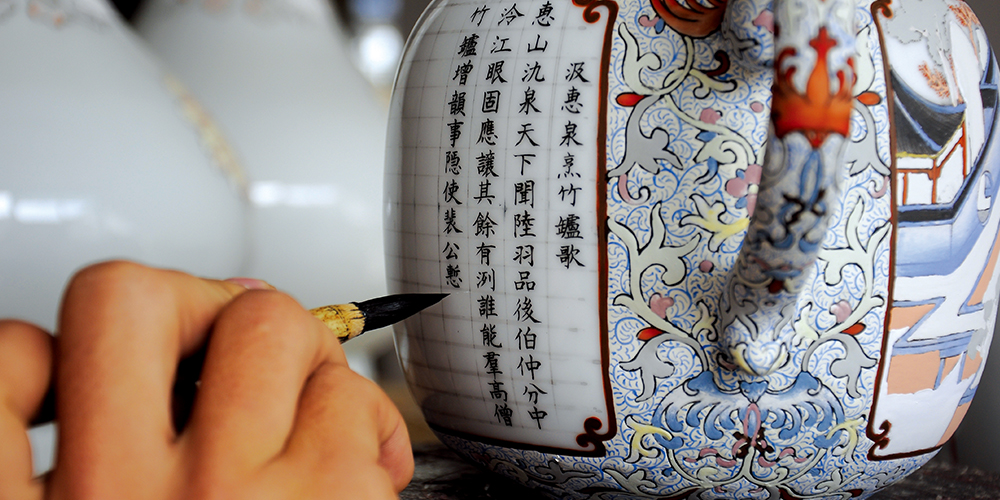 汲惠泉烹竹鑪歌
惠山氿泉天下聞陸羽品後伯仲分中
泠江眼固應讓其餘有冽誰能羣高僧
竹鑪增韻事隠使裴公慙